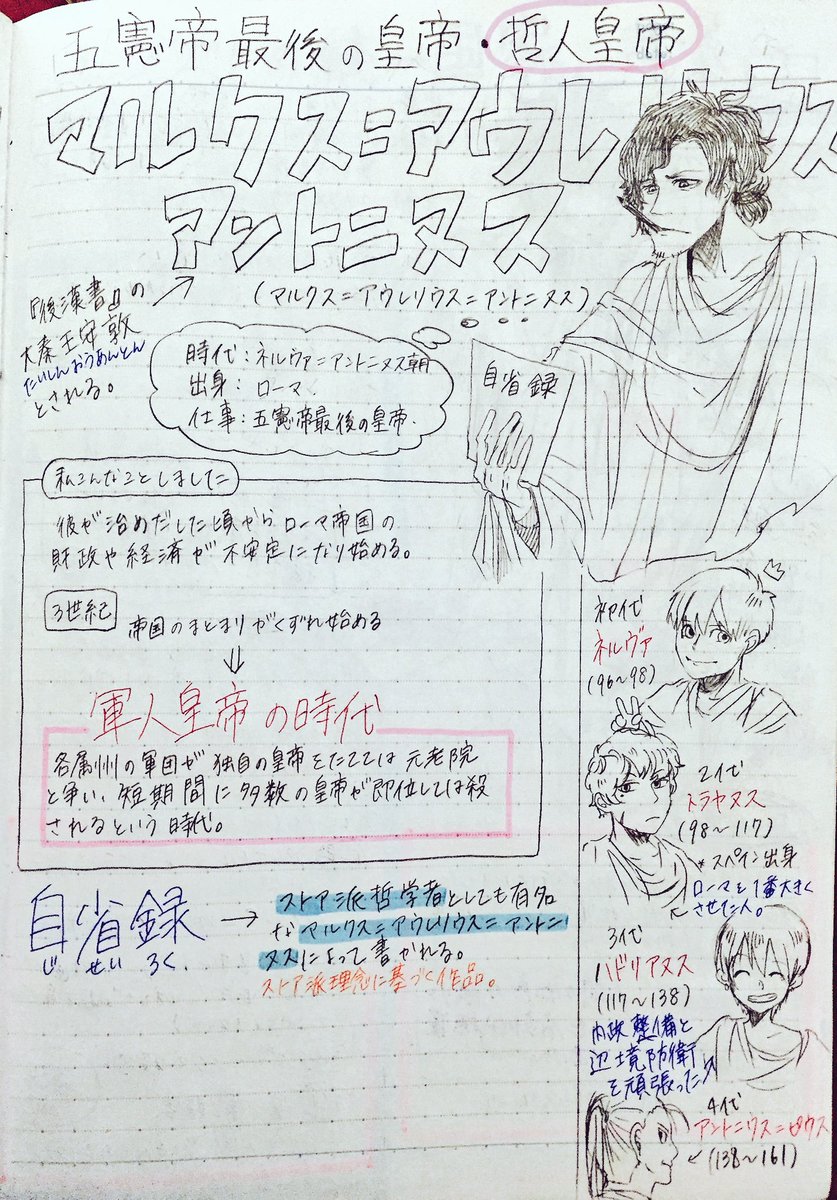 五憲帝最後の皇帝・哲人皇帝
マルクス=アウレリウス
アントニヌス
(マルクス=アウレリウス=アントニヌス)
『後漢書』の
大秦王安敦
たいしんおうあんとん
とされる。
時代:ネルヴァ=アントニヌス朝
出身:ローマ
仕事:五憲帝最後の皇帝.
自省録
私こんなことしました
彼が治めだした頃からローマ帝国の
財政や経済が不安定になり始める。
3世紀
帝国のまとまりがくずれ始める
⇓
軍人皇帝の時代
各属州の軍団が独自の皇帝をたてては元老院
と争い、短期間に多数の皇帝が即位しては殺
されるという時代。
自省録
じせいろく
→ストア派哲学者としても有名
なマルクス=アウレリウス=アントニ
ヌスによって書かれる。
ストア派理念に基づく作品。
初代
ネルヴァ
(96~98)
2代
トラヤヌス
(98~117)
*スペイン出身
ローマを1番大きく
させた人。
3代
ハドリアヌス
(117~138)
内政整備と
辺境防衛
を頑張った人
4代
アントニヌス=ピウス
(138~161)